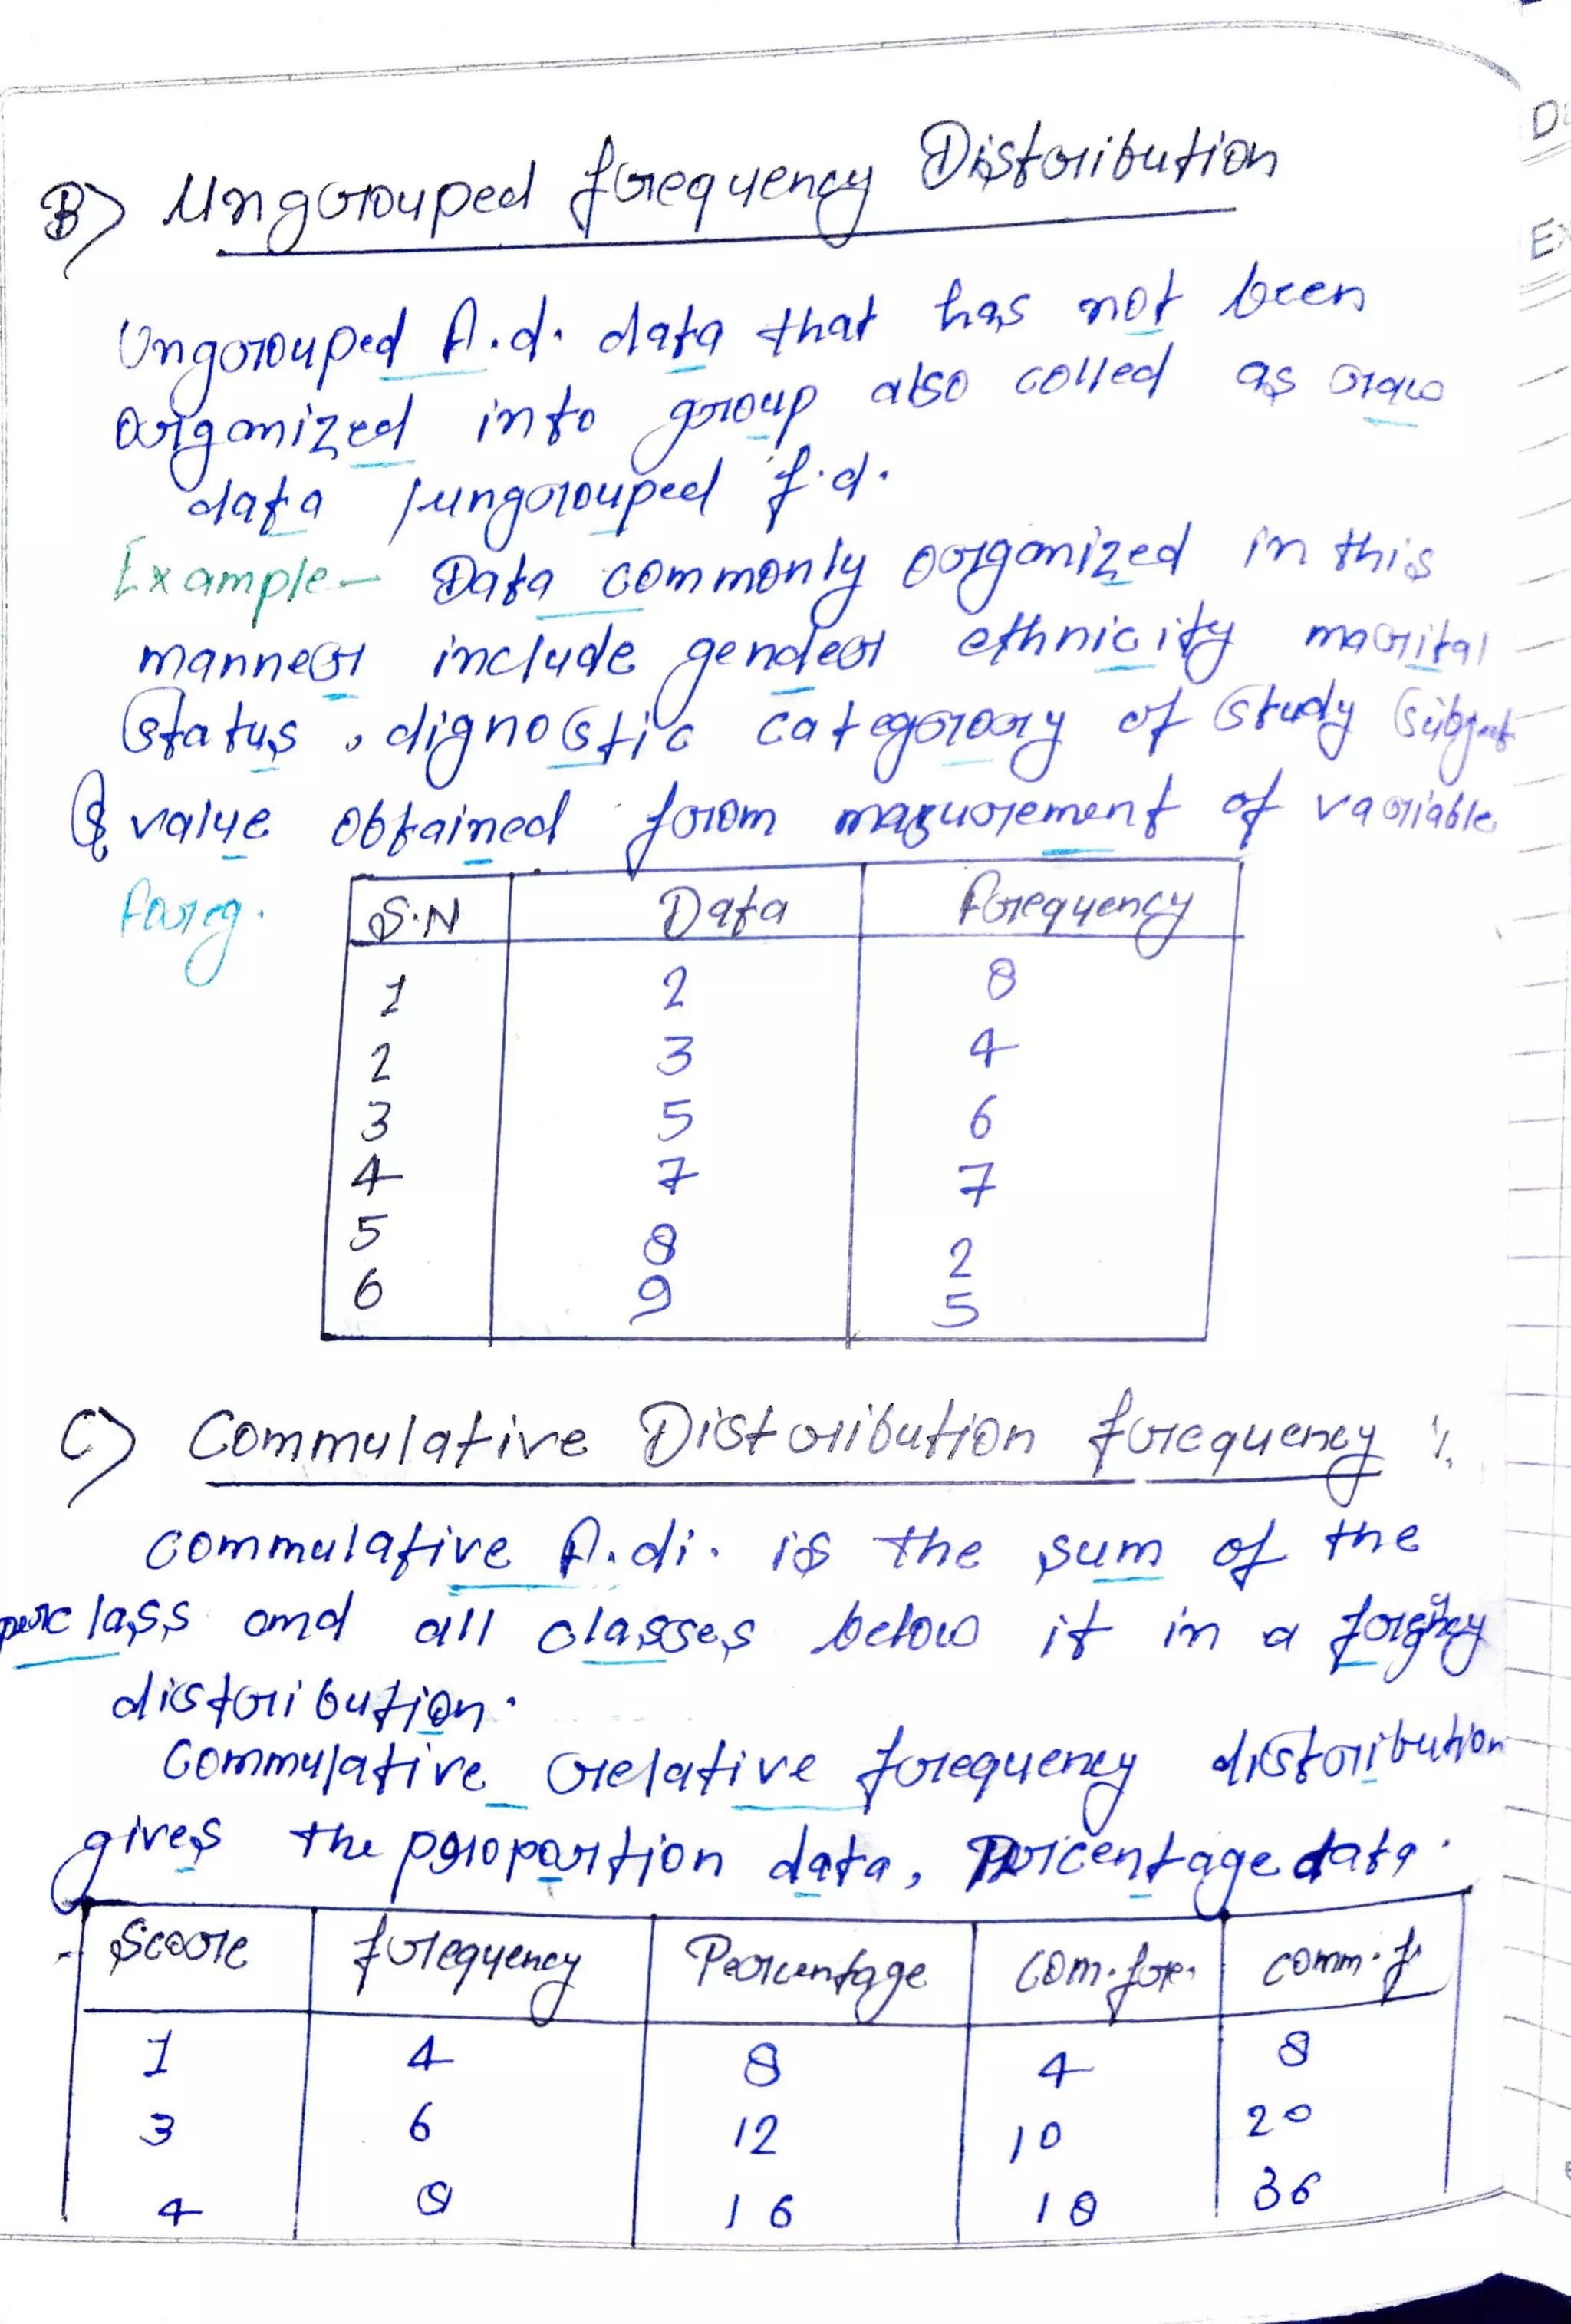 B) Ungrouped frequency Distribution
Ungrouped f.d. data that has not been
organized into group also colled as raw
data /ungrouped f.d.
Example- Data commonly organized in this
manner include gender ethnicity marital
status, dignostic categorory of study subject
& value obtained from mazurement of variable
for eg.
S.N Data frequency
1 2 8
2 3 4
3 5 6
4 7 7
5 8 2
6 9 5
C) Commulative Distribution frequency
commulative f.di. is the sum of the
class and all classes below it in a
distribution.
Commulative relative frequency distribution
gives the proportion data, Percentage data.
Score frequency Percentage com.fre. comm.f
1 4 8 4 8
3 6 12 10 20
4 8 16 18 36